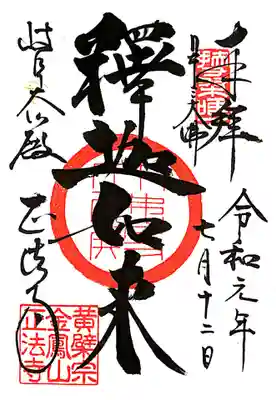 奉拝
令和元年
七月十二日
釋迦如来
岐阜大仏殿
正法寺
黄檗宗
金鳳山
正法寺